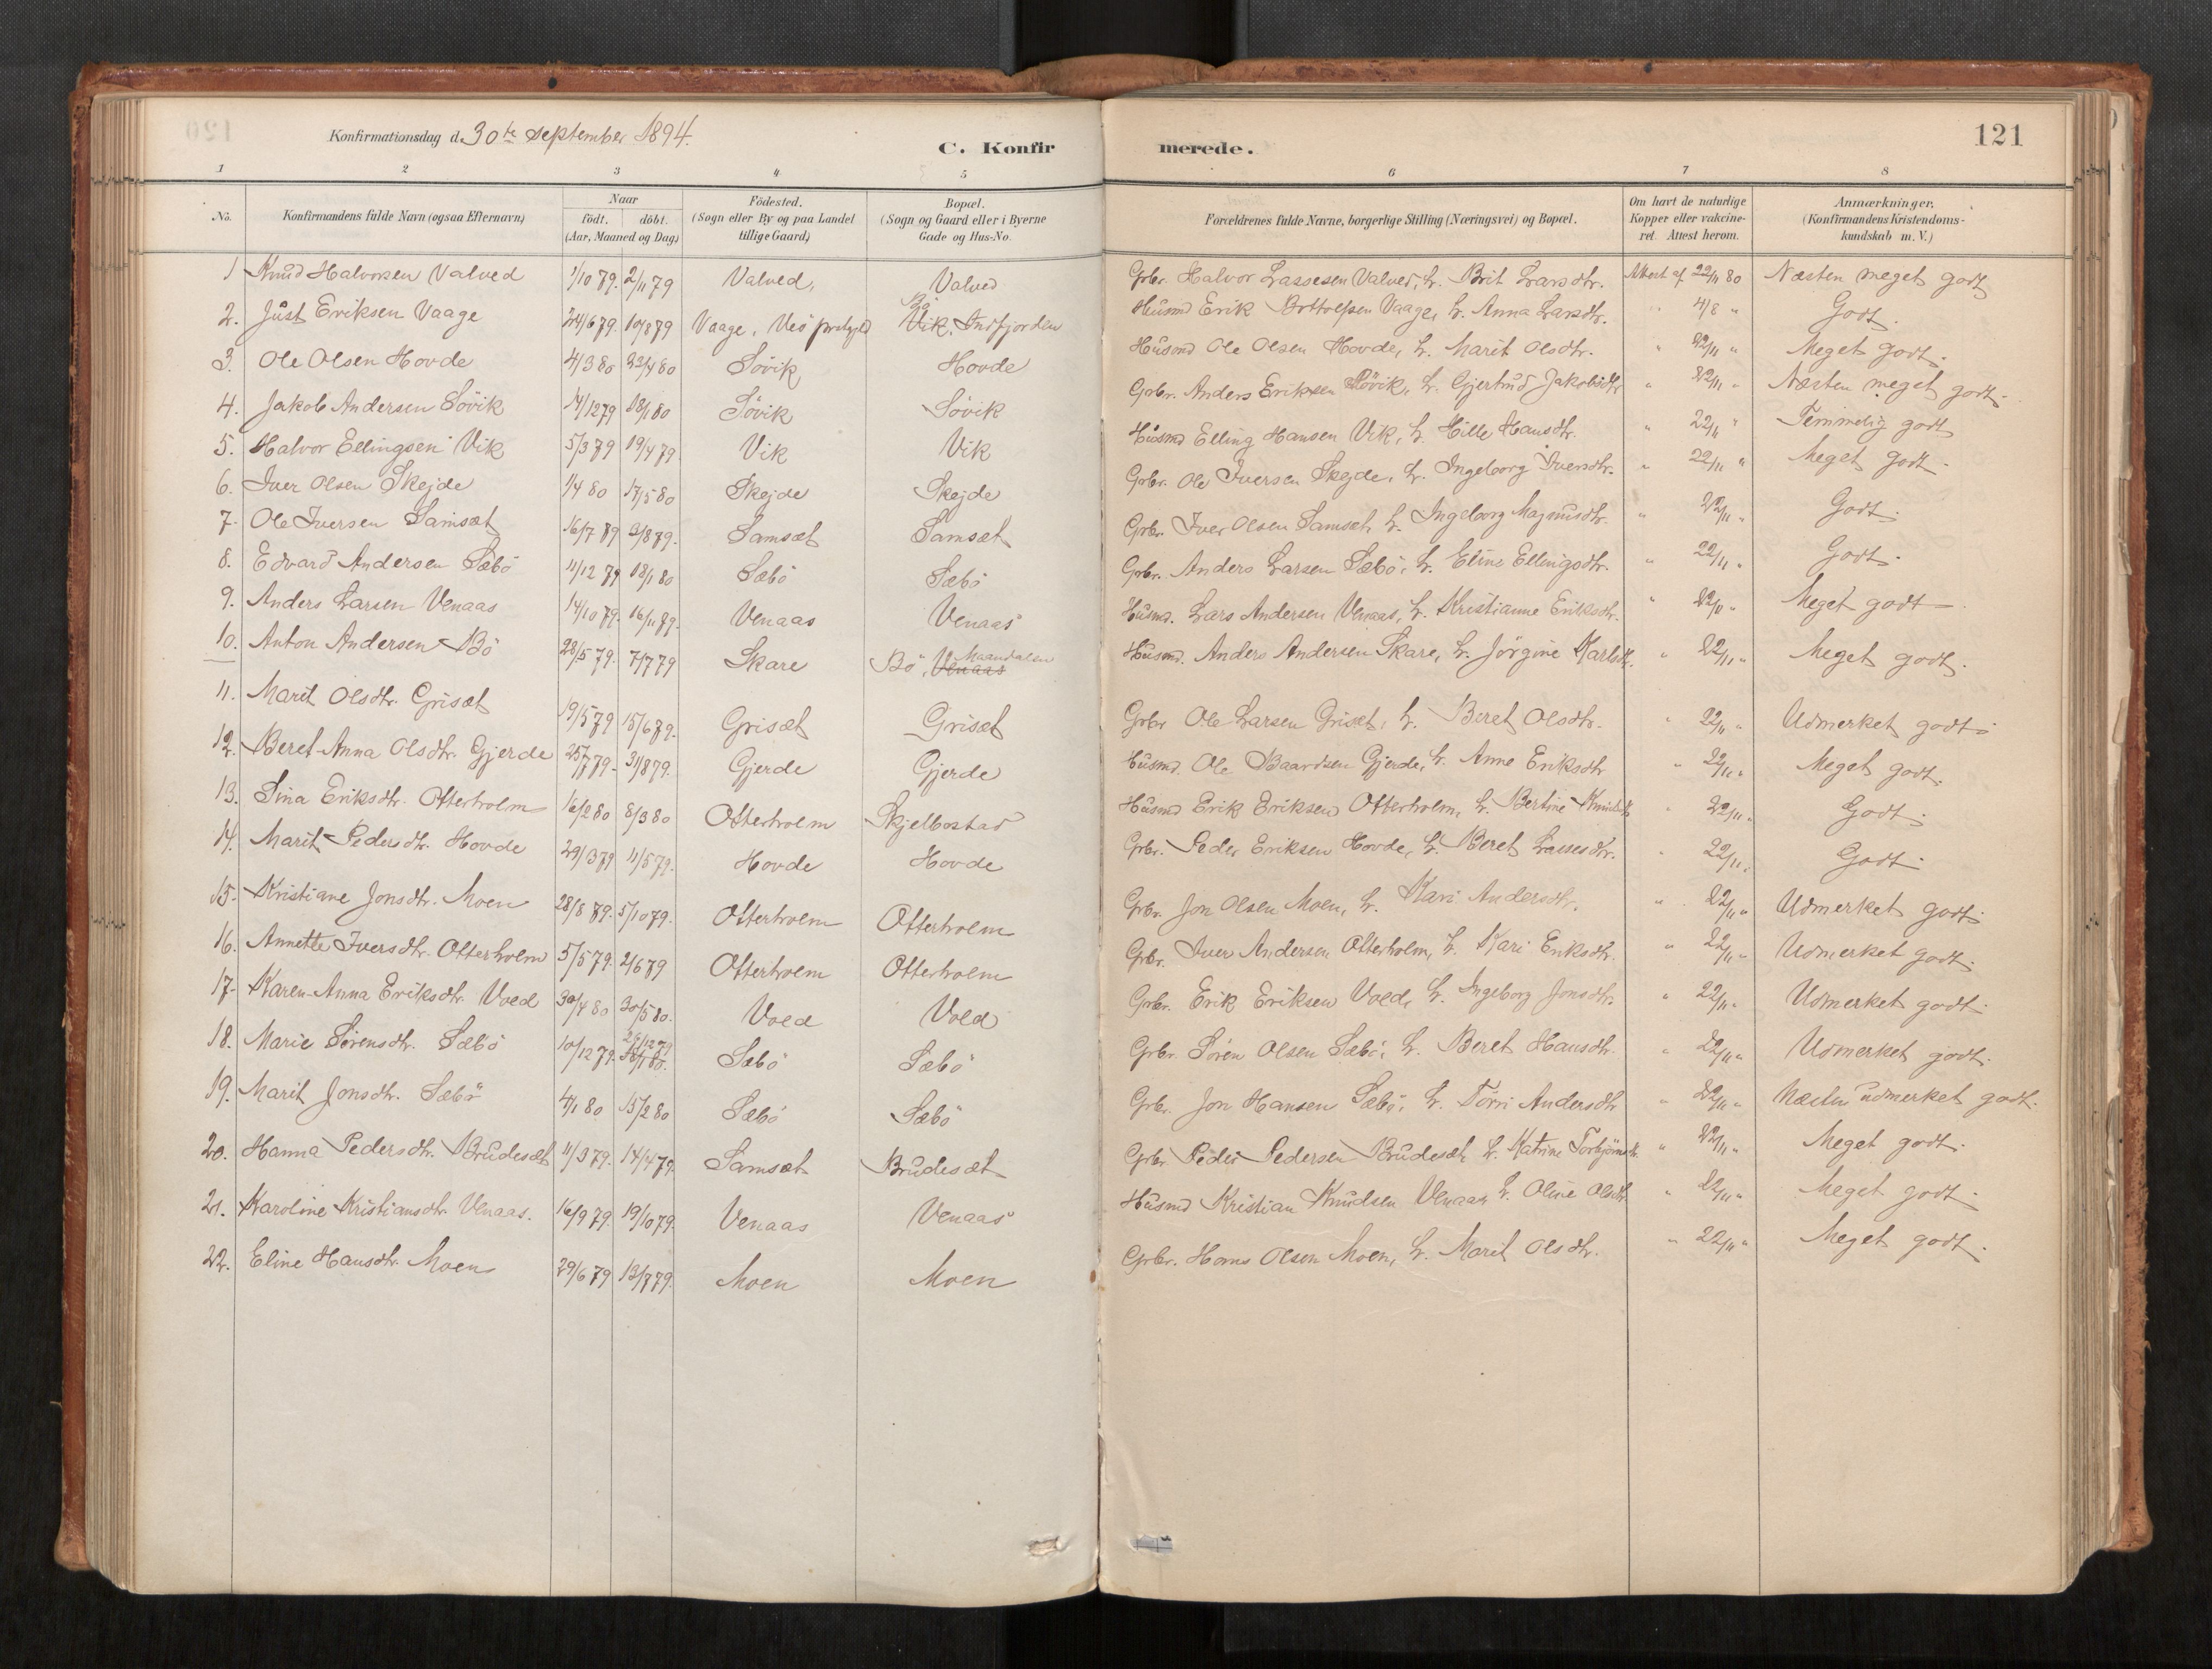 Konfirmationsdag d. 30te September 1894.
C. Konfir merede. 121
1 2 3 4 5 6 7 8
No. Konfirmandens fulde Navn (ogsaa Efternavn) Naar födt. döbt. (Aar, Maaned og Dag) Födested. (Sogn eller By og paa Landet tillige Gaard) Bopæl. (Sogn og Gaard eller i Byerne Gade og Hus-No. Forældrenes fulde Navne, borgerlige Stilling (Næringsvei) og Bopæl. Om havt de naturlige Kopper eller vakcineret. Attest herom. Anmærkninger. (Konfirmandens Kristendomskundskab m. V.)
1 Knud Halvorsen Valved 1/10 79. 2/11 79 Valved, Valved Grbr. Halvor Lassesen Valved, h. Brit Larsdtr. Attest af 22/11 80 Næsten meget godt
2. Just Eriksen Vaage 24/6 79. 10/8 79 Vaage, Veö prstgjld Bö Vik, Indfjorden Husmd Erik Bottolfsen Vaage, h. Anna Larsdtr. " 4/8 " Godt.
3. Ole Olsen Hovde 4/3 80 23/4 80 Sövik Hovde Husmd Ole Olsen Hovde, h. Marit Olsdtr. " 22/11 " Meget godt.
4. Jakob Andersen Sövik 14/12 79 18/1 80 Sövik Sövik Grbr. Anders Eriksen Sövik, h. Gjertrud Jakobsdtr " 22/11 " Næsten meget godt.
5. Halvor Ellingsen Vik 5/3 79 19/4 79 Vik Vik Husmd Elling Hansen Vik, h. Hille Hansdtr. " 22/11 " Temmelig godt
6. Iver Olsen Skejde 1/4 80 17/5 80 Skejde Skejde Grbr. Ole Iversen Skejde, h. Ingeborg Iversdtr. " 22/11 " Meget godt.
7. Ole Iversen Samsæt 16/7 79 3/8 79. Samsæt Samsæt Grbr. Iver Olsen Samsæt, h. Ingeborg Magnusdtr. " 22/11 " Godt.
8. Edvard Andersen Sæbö 11/12 79 18/1 80 Sæbö Sæbö Grbr. Anders Larsen Sæbö, h. Eline Ellingsdtr. " 22/11 " Godt.
9. Anders Larsen Venaas 14/10 79. 16/11 79. Venaas Venaas Husmd. Lars Andersen Venaas, h. Kristianne Eriksdtr. " 22/11 " Meget godt.
10. Anton Andersen Bö 28/5 79. 7/7 79 Skare Bö, Venaas Maandalen Husmd. Anders Andersen Skare, h. Jörgine Karlsdtr. " 22/11 " Meget godt.
11. Marit Olsdtr. Grisæt 19/5 79 15/6 79. Grisæt Grisæt Grbr Ole Larsen Grisæt, h. Beret Olsdtr. " 22/11 " Udmerket godt.
12. Beret-Anna Olsdtr. Gjerde 25/7 79. 31/8 79. Gjerde Gjerde Husmd. Ole Baardsen Gjerde, h. Anne Eriksdtr " 22/11 " Meget godt.
13. Sina Eriksdtr. Otterholm 16/2 80 8/3 80 Otterholm Skjelbostad Husmd Erik Eriksen Otterholm, h. Bertine Knudsdtr " 22/11 " Godt.
14. Marit Pedersdtr. Hovde 29/3 79 11/5 79. Hovde Hovde Grbr. Peder Eriksen Hovde, h. Beret Lassesdtr. " 22/11 " Godt.
15. Kristiane Jonsdtr. Moen 28/8 79. 5/10 79. Otterholm Otterholm Grbr. Jon Olsen Moen, h. Kari Andersdtr. " 22/11 " Udmerket godt.
16. Annette Iversdtr. Otterholm 5/5 79. 2/6 79 Otterholm Otterholm Grbr. Iver Andersen Otterholm, h. Kari Eriksdtr. " 22/11 " Udmerket godt.
17. Karen-Anna Eriksdtr. Vold 30/4 80 30/5 80. Vold Vold Grbr. Erik Eriksen Vold, h. Ingeborg Jonsdtr. " 22/11 " Udmerket godt.
18. Marie Sørensdtr. Sæbö 10/12 79. Sæbö Sæbö Grbr. Sören Olsen Sæbö, h. Beret Hansdtr. " 22/11 " Udmerket godt.
19. Marit Jonsdtr. Sæbö 4/1 80 15/2 80 Sæbö Sæbö Grbr. Jon Hansen Sæbö, h. Törri Andersdtr " 22/11 " Næsten udmerket godt.
20. Hanna Pedersdtr. Brudesæt 11/3 79. 14/4 79. Samsæt Brudesæt Grbr. Peder Pedersen Brudesæt, h. Katrine Torbjörnsdtr. " 22/11 " Meget godt.
21. Karoline Kristiansdtr. Venaas. 16/9 79. 19/10 79. Venaas Venaas Husmd Kristian Knudsen Venaas, h. Oline Olsdtr. " 22/11 " Meget godt.
22. Eline Hansdtr. Moen 29/6 79 13/7 79. Moen Moen Grbr. Hans Olsen Moen, h. Marit Olsdtr. " 22/11 " Meget godt.